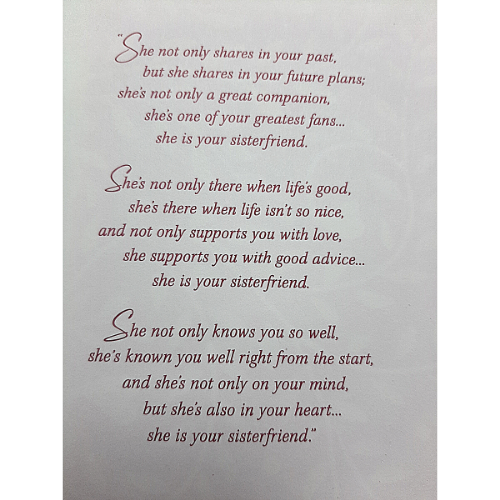 "She not only shares in your past,
but she shares in your future plans;
she's not only a great companion,
she's one of your greatest fans...
she is your sisterfriend.
She's not only there when life's good,
she's there when life isn't so nice,
and not only supports you with love,
she supports you with good advice...
she is your sisterfriend.
She not only knows you so well,
she's known you well right from the start,
and she's not only on your mind,
but she's also in your heart...
she is your sisterfriend."